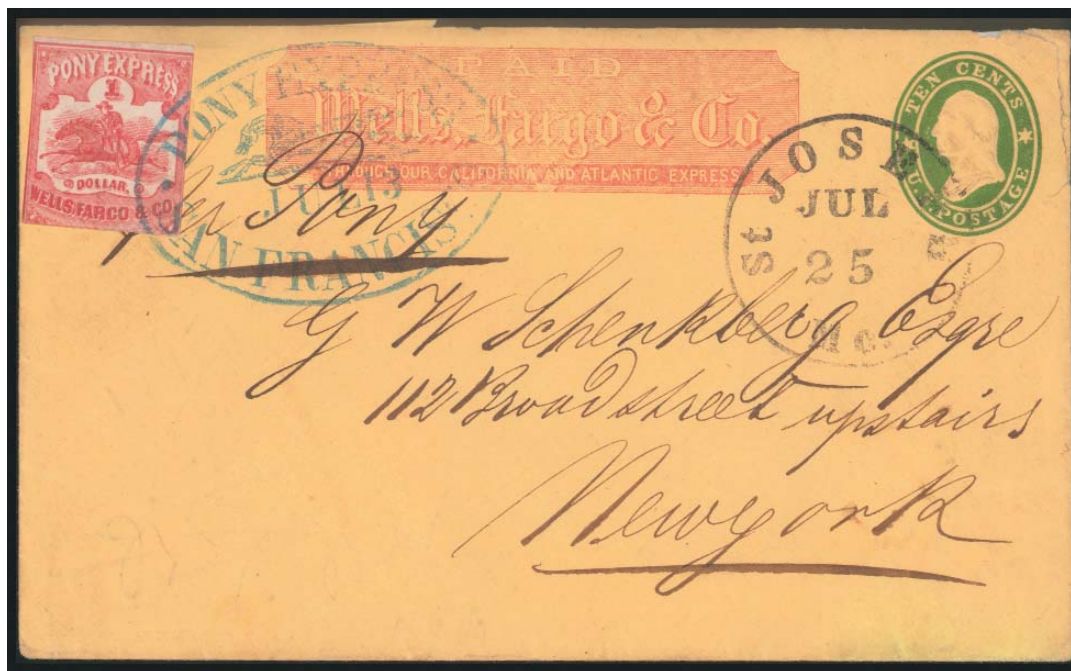 PONY EXPRESS
1
DOLLAR.
WELLS, FARGO & CO.
PONY EXPRESS
JUL 13
SAN FRANCISCO
PAID
Wells, Fargo & Co.
THROUGH OUR CALIFORNIA AND ATLANTIC EXPRESS.
TEN CENTS
U.S. POSTAGE
St JOSEPH
JUL
25
Mo.
per Pony
G W Schenkberg Esqre
112 Broad street upstairs
New york